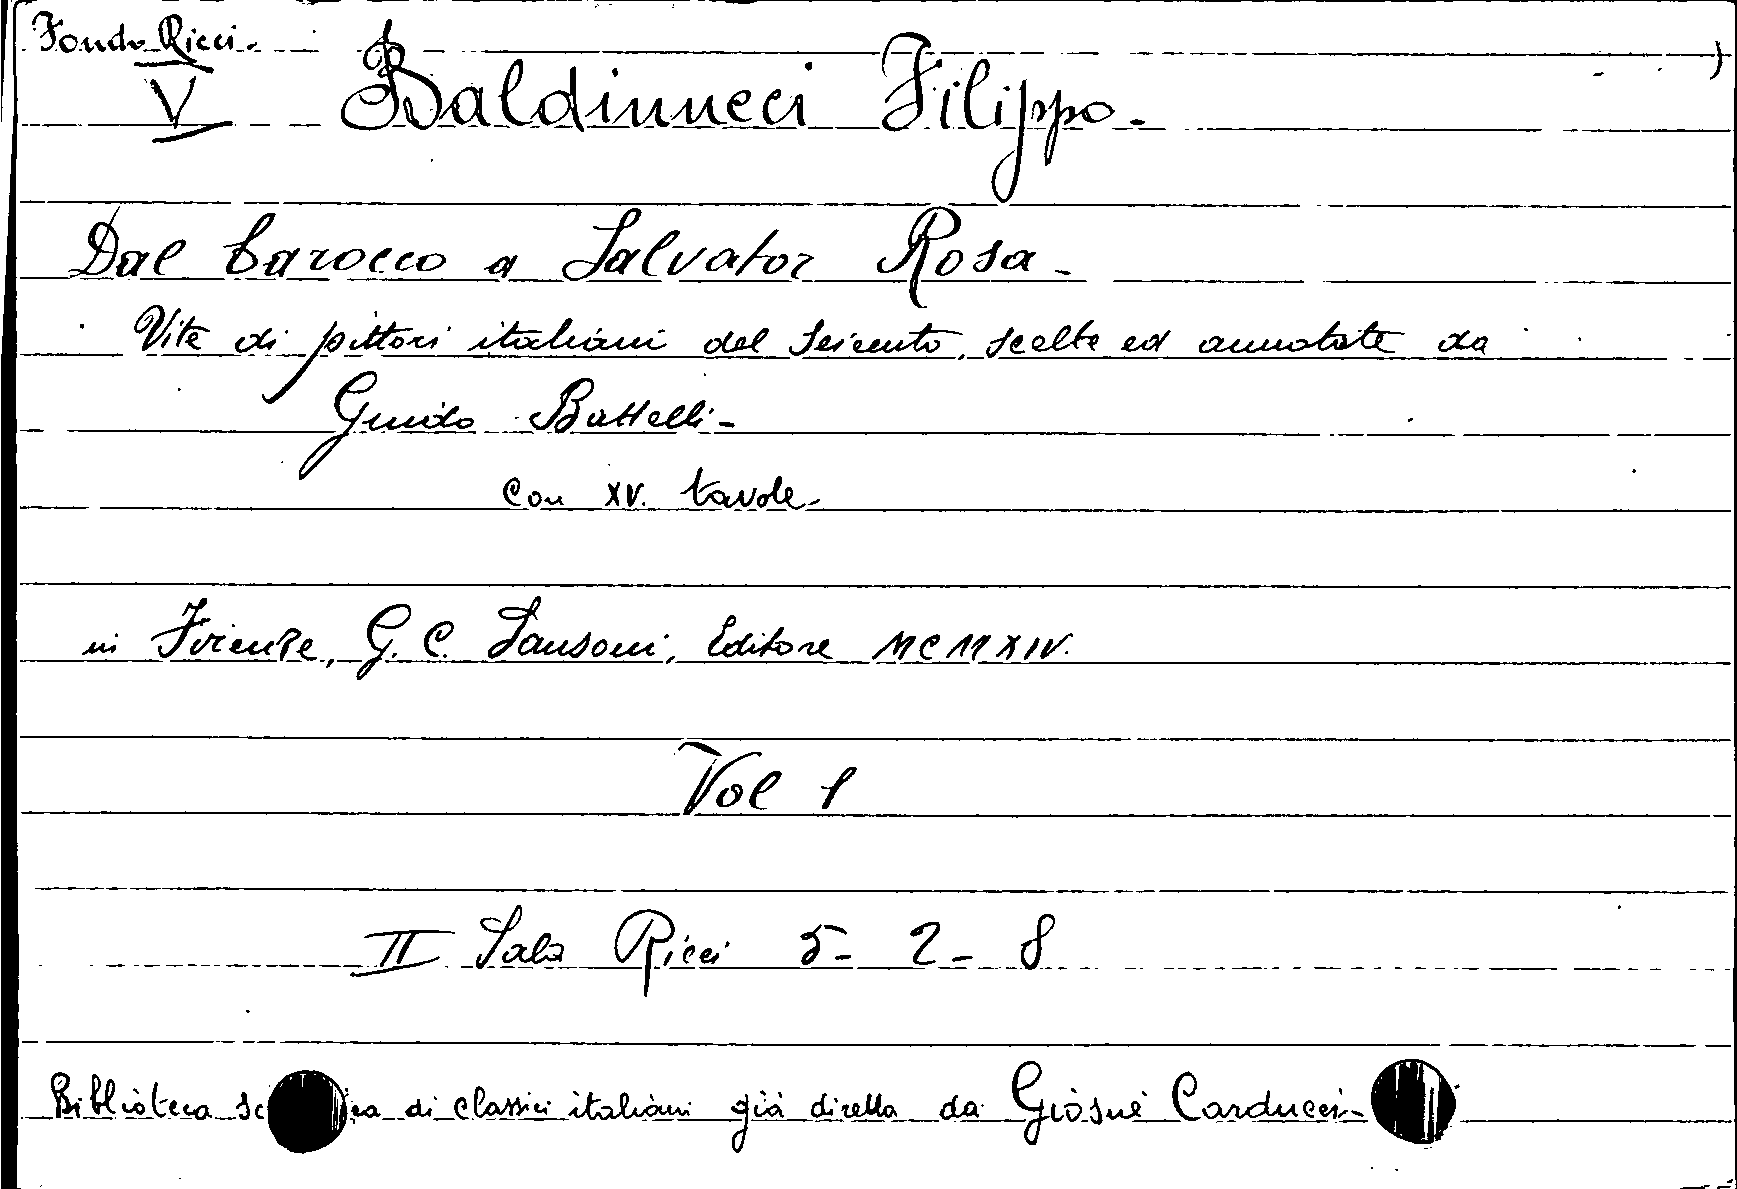 Fondo Ricci.
V Baldinucci Filippo.
Dal barocco a Salvator Rosa.
Vite di pittori italiani del Seicento, scelte ed annotate da
Guido Battelli.
con XV. tavole.
in Firenze, G. C. Sansoni, Editore MCMXIV.
Vol 1
II Sala Ricci 5 - 2 - 8
Biblioteca di classici italiani già diretta da Giosuè Carducci.